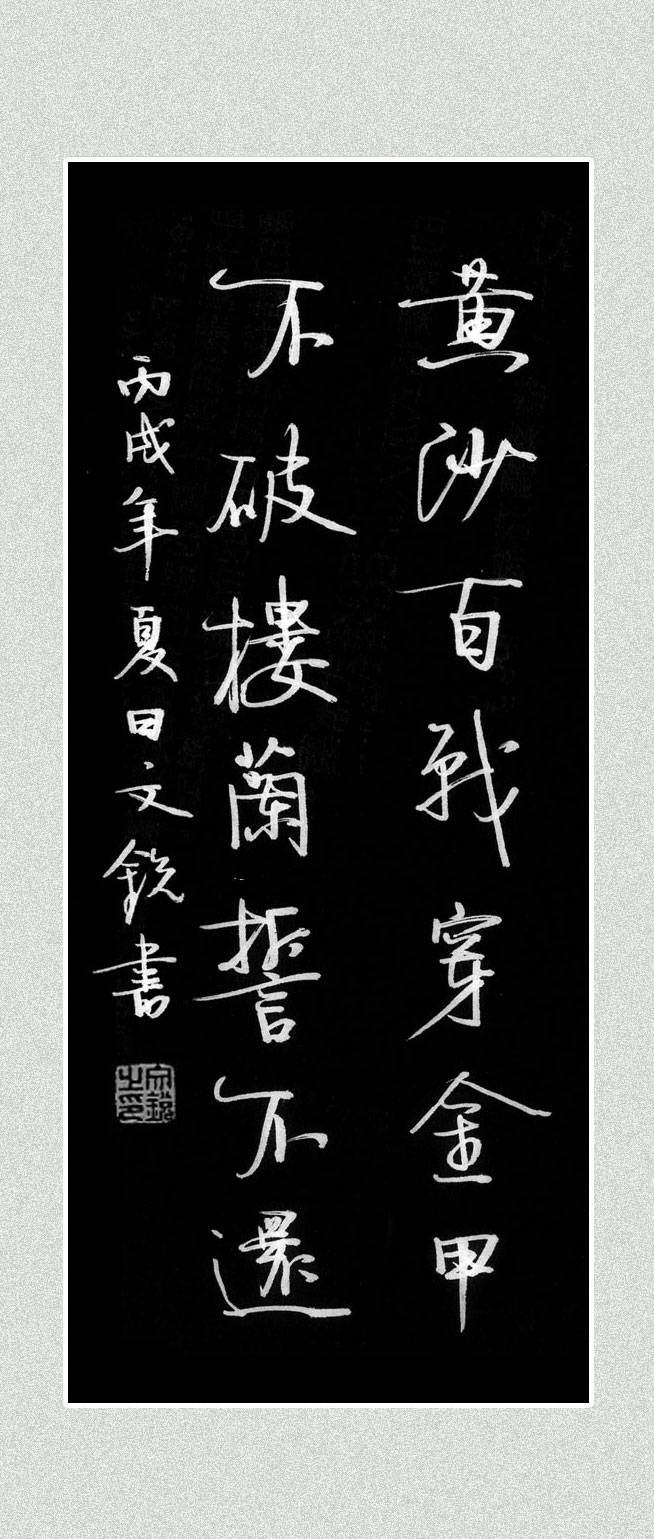 黄沙百戰穿金甲
不破樓蘭誓不還
丙戌年夏日文銳書
文銳之印